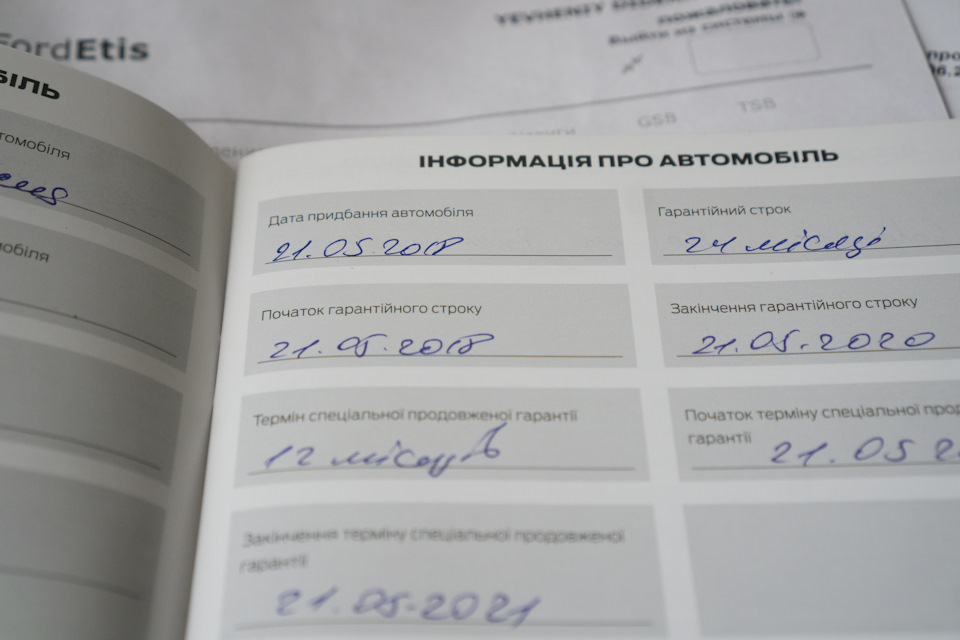 FordEtis
пожаловать
Выйти из системы
GSB
TSB
БІЛЬ
томобіля
мобіля
ІНФОРМАЦІЯ ПРО АВТОМОБІЛЬ
Дата придбання автомобіля
21.05.2018
Гарантійний строк
24 місяці
Початок гарантійного строку
21.05.2018
Закінчення гарантійного строку
21.05.2020
Термін спеціальної продовженої гарантії
12 місяців
Початок терміну спеціальної прод
гарантії
21.05 2
Закінчення терміну спеціальної продовженої
гарантії
21.05.2021